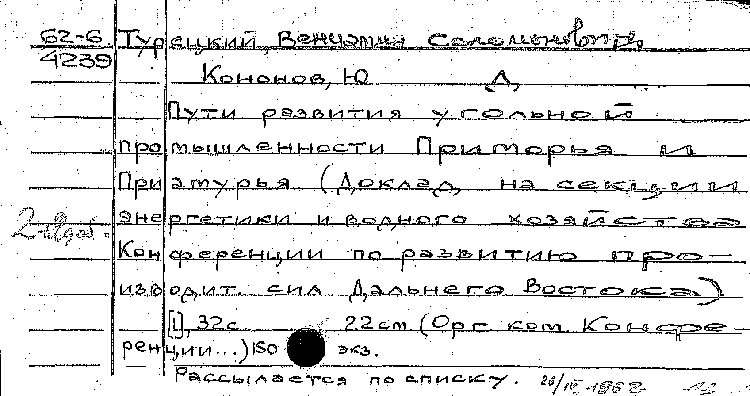 62-6 Турецкий, Вениамин Соломонович,
4239
Кононов, Ю Д,
Пути развития угольной
промышленности Приморья и
Приамурья (Доклад на секции
энергетики и водного хозяйства
Конференции по развитию про-
извoдит. сил Дальнего Востока)
[1], 32с 22см (Орг. ком. Конфе-
ренции...) 150 экз.
Рассылается по списку. 26/IV 1962